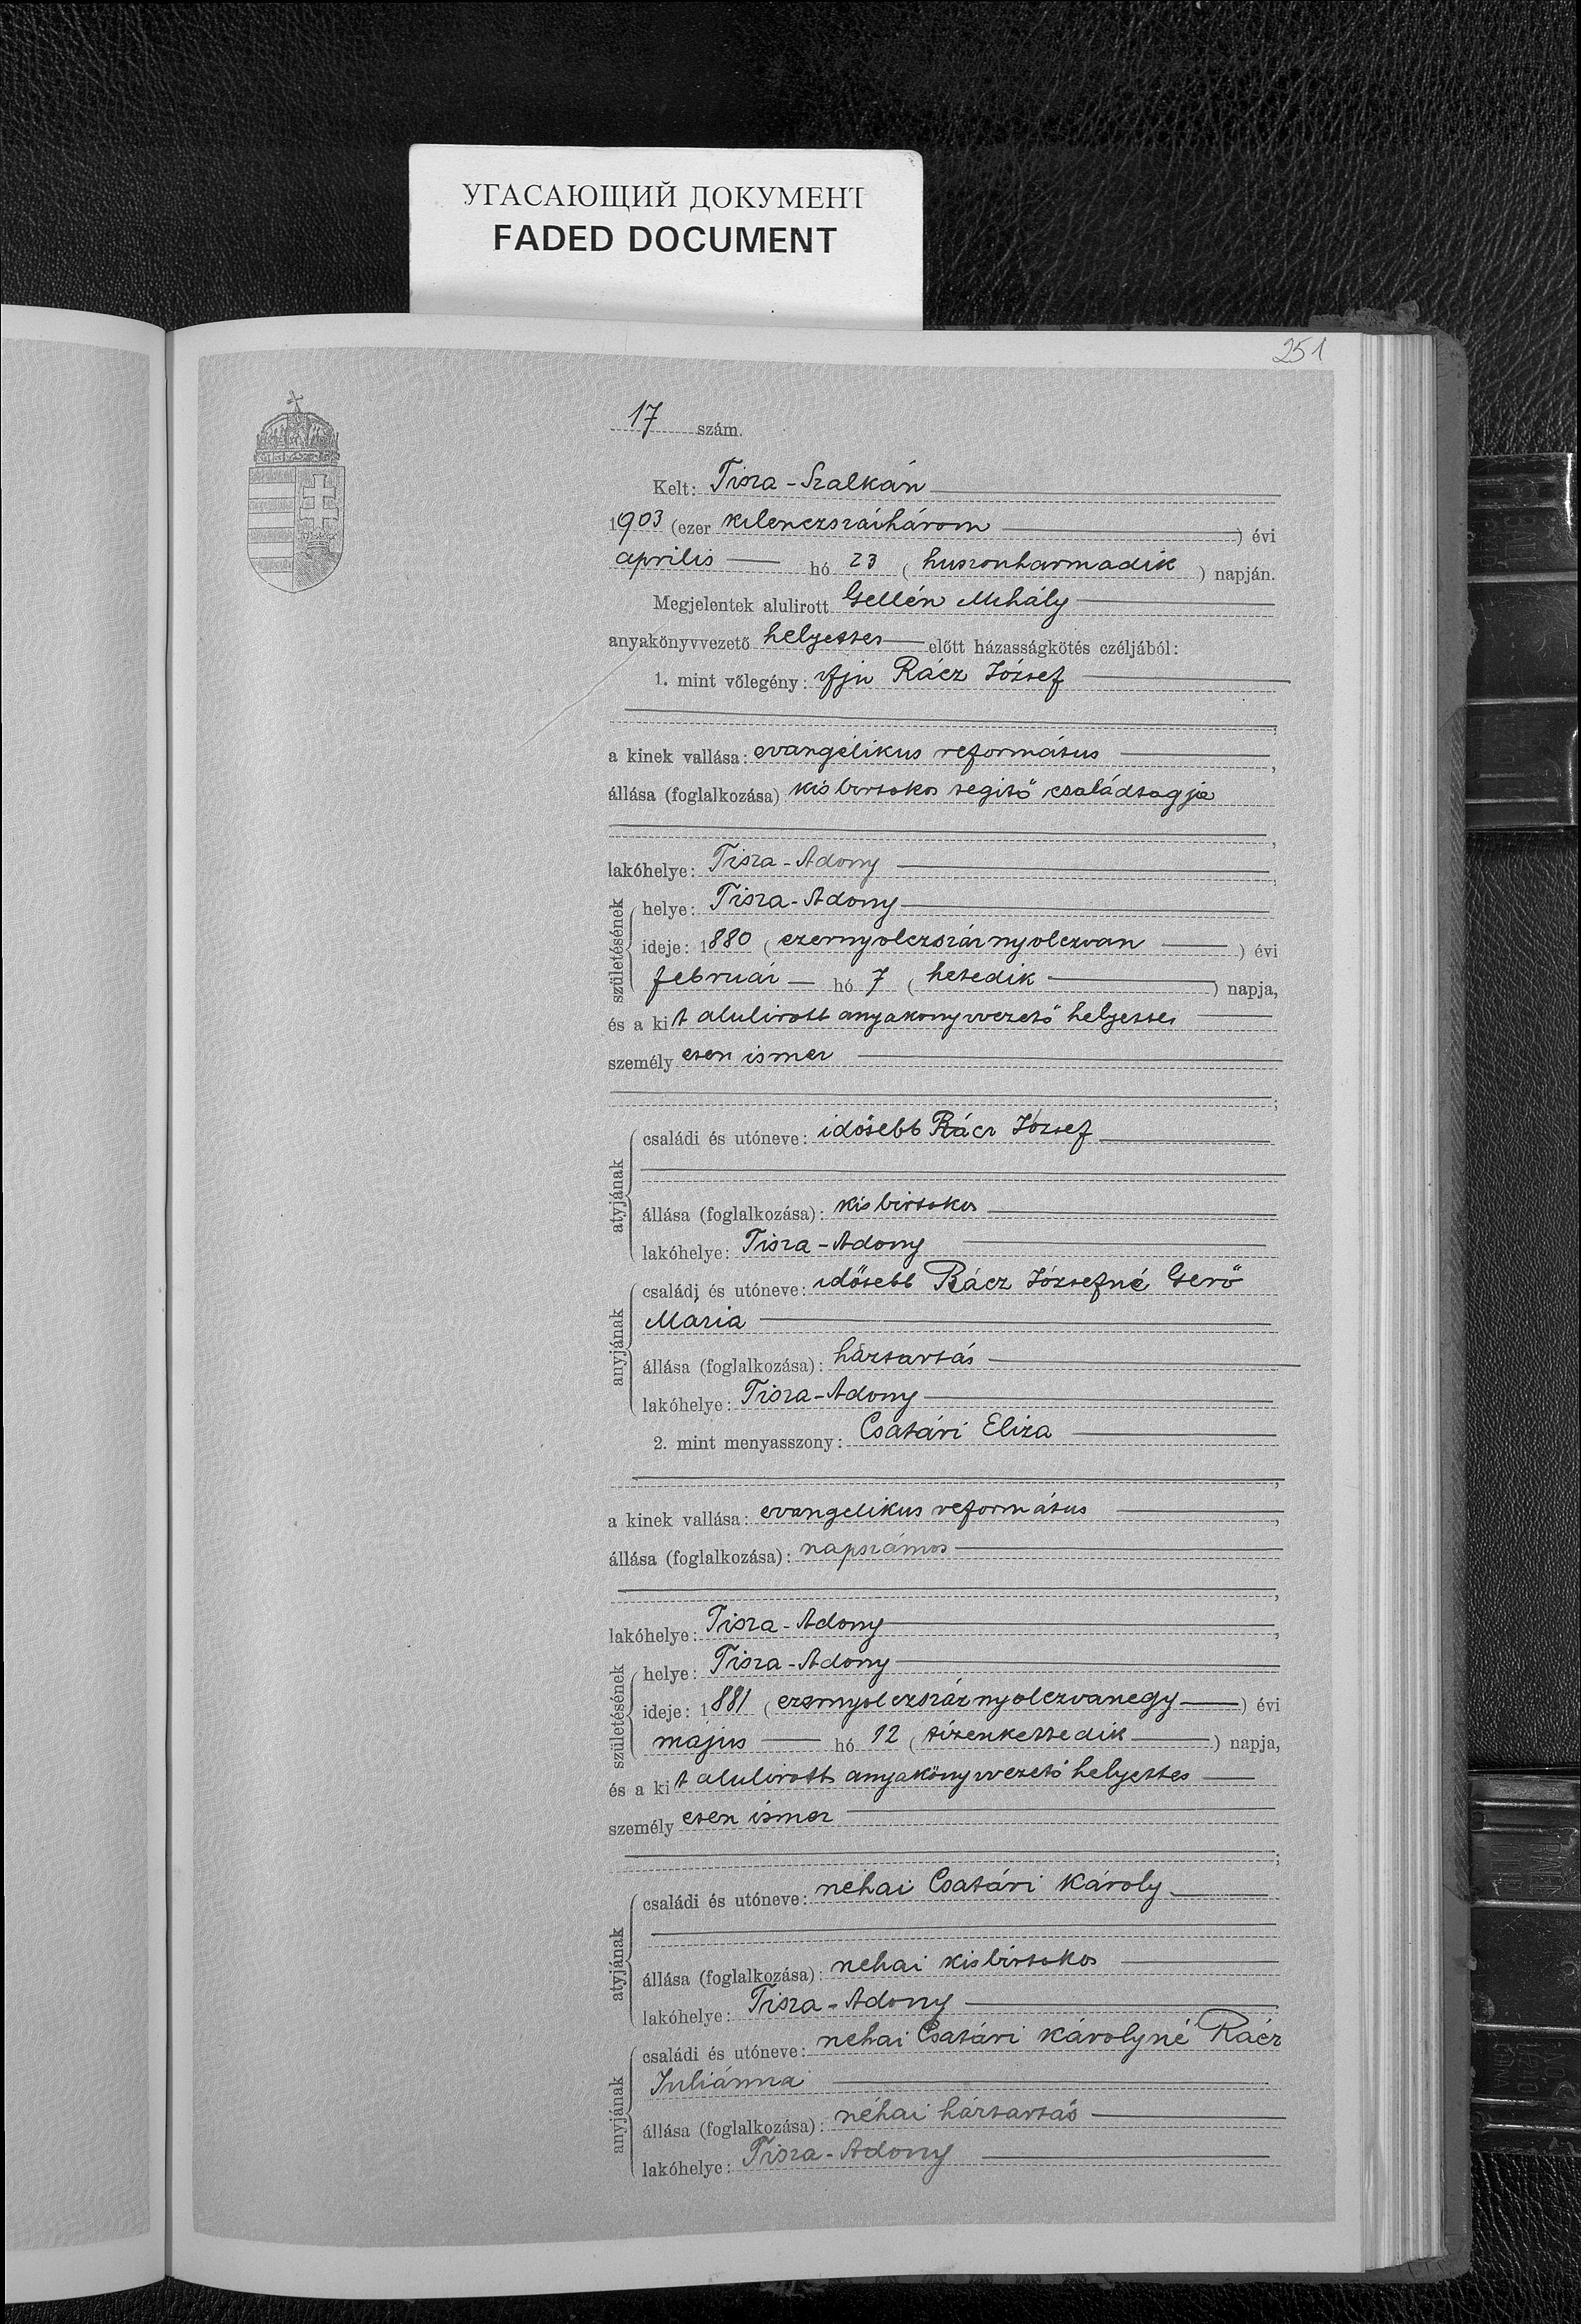 УГАСАЮЩИЙ ДОКУМЕНТ
FADED DOCUMENT
251
17 szám.
Kelt: Tisza-Szalkán
1903 (ezer kilenczszázhárom) évi
április hó 23 (huszonharmadik) napján.
Megjelentek alulirott Gellén Mihály
anyakönyvvezető helyettes előtt házasságkötés czéljából:
1. mint vőlegény: ifju Rácz József
a kinek vallása: evangélikus református,
állása (foglalkozása) kisbirtokos segitő családtagja
lakóhelye: Tisza-Adony,
születésének
helye: Tisza-Adony
ideje: 1880 (ezernyolczszáznyolczvan) évi
február hó 7 (hetedik) napja,
és a kit alulirott anyakönyvvezető helyettes
személyesen ismer
;
atyjának
családi és utóneve: idősebb Rácz József
állása (foglalkozása): kisbirtokos
lakóhelye: Tisza-Adony
anyjának
családi és utóneve: idősebb Rácz Józsefné Gerő
Mária
állása (foglalkozása): háztartás
lakóhelye: Tisza-Adony
2. mint menyasszony: Csatári Eliza
a kinek vallása: evangelikus református,
állása (foglalkozása): napszámos
lakóhelye: Tisza-Adony,
születésének
helye: Tisza-Adony
ideje: 1881 (ezernyolczszáznyolczvanegy) évi
május hó 12 (tizenkettedik) napja,
és a kit alulirott anyakönyvvezető helyettes
személyesen ismer
;
atyjának
családi és utóneve: néhai Csatári Károly
állása (foglalkozása): néhai kisbirtokos
lakóhelye: Tisza-Adony
anyjának
családi és utóneve: néhai Csatári Károlyné Rácz
Juliánna
állása (foglalkozása): néhai háztartás
lakóhelye: Tisza-Adony